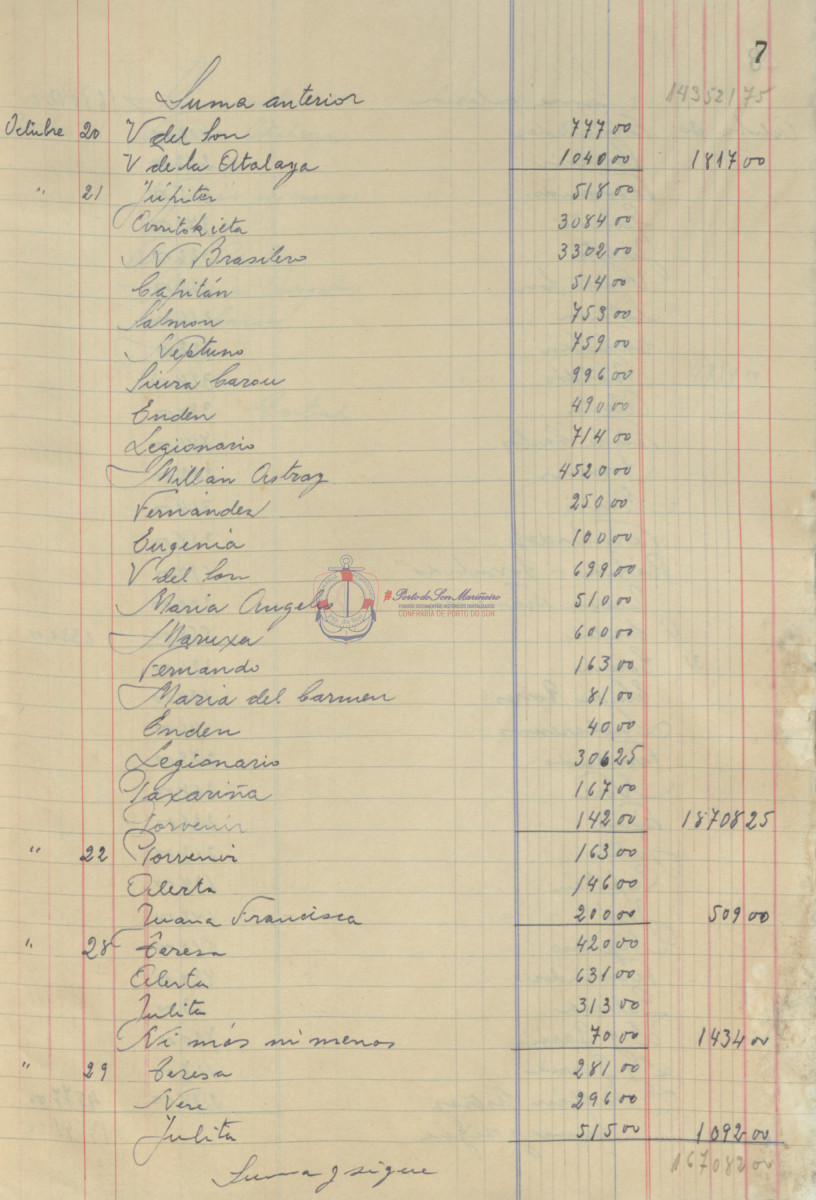 7
Suma anterior 14352175
Octubre 20 V del Son 777 00
V de la Atalaya 1040 00 1817 00
" 21 Júpiter 518 00
Arritokieta 3084 00
N Brasilero 3302 00
Capitán 514 00
Salmon 753 00
Neptuno 759 00
Sierra Carou 996 00
Enden 490 00
Legionario 714 00
Millán Astray 4520 00
Fernandez 250 00
Eugenia 100 00
V del Son 699 00
Maria Angeles 510 00
#Porto do Son Mariñeiro
FONDOS DOCUMENTAIS HISTÓRICOS DIXITALIZADOS
CONFRARÍA DE PORTO DO SON
Maruxa 600 00
Fernando 163 00
Maria del Carmen 81 00
Enden 40 00
Legionario 306 25
Paxariña 167 00
Porvenir 142 00 18708 25
" 22 Porvenir 163 00
Alerta 146 00
Juana Francisca 200 00 509 00
" 28 Teresa 420 00
Alerta 631 00
Julita 313 00
Ni más ni menos 70 00 1434 00
" 29 Teresa 281 00
Nere 296 00
Julita 515 00 1092 00
Suma y sigue 167082 00